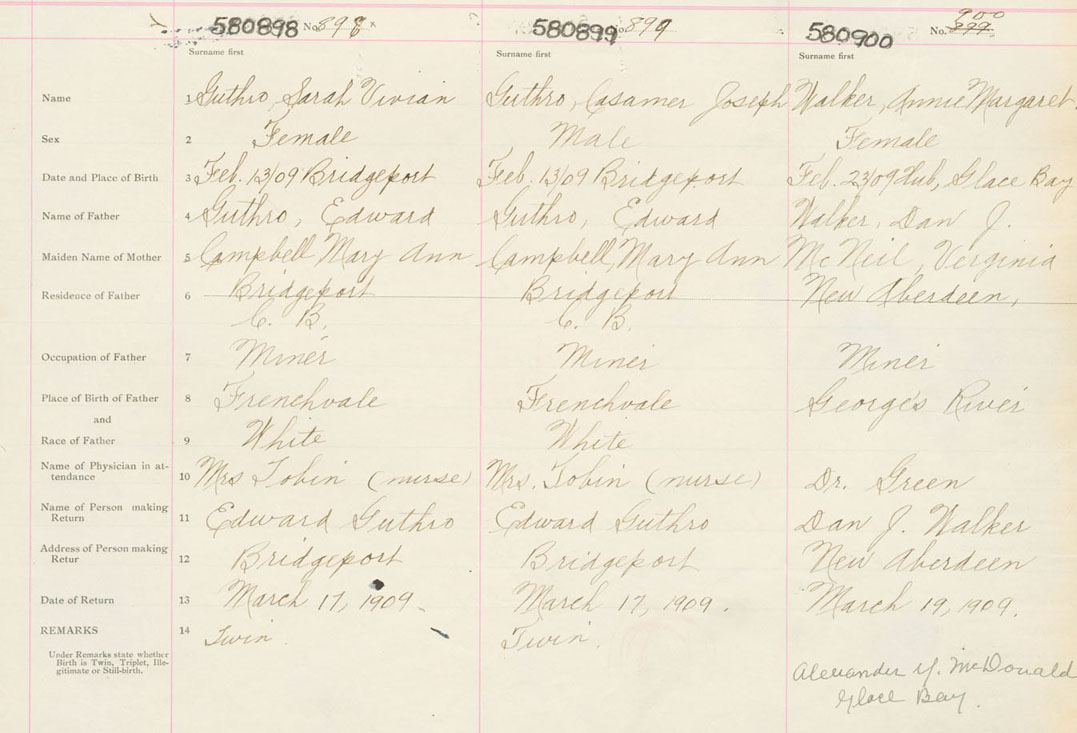 580898 No. 898 580899 No. 899 580900 No. 899 900
Surname first Surname first Surname first
Name 1 Guthro, Sarah Vivian Guthro, Casamer Joseph Walker, Annie Margaret.
Sex 2 Female Male Female
Date and Place of Birth 3 Feb. 13/09 Bridgeport Feb. 13/09 Bridgeport Feb. 23/09 Hub, Glace Bay
Name of Father 4 Guthro, Edward Guthro, Edward Walker, Dan J.
Maiden Name of Mother 5 Campbell Mary Ann Campbell, Mary Ann McNeil, Verginia
Residence of Father 6 Bridgeport Bridgeport New Aberdeen,
C. B. C. B.
Occupation of Father 7 Miner Miner Miner
Place of Birth of Father 8 Frenchvale Frenchvale George's River
and
Race of Father 9 White White
Name of Physician in at-
tendance 10 Mrs Tobin (nurse) Mrs. Tobin (nurse) Dr. Green
Name of Person making
Return 11 Edward Guthro Edward Guthro Dan J. Walker
Address of Person making
Retur 12 Bridgeport Bridgeport New Aberdeen
Date of Return 13 March 17, 1909. March 17, 1909. March 19, 1909.
REMARKS 14 Twin. Twin.
Under Remarks state whether
Birth is Twin, Triplet, Ille-
gitimate or Still-birth.
Alexander Y. McDonald
Glace Bay.